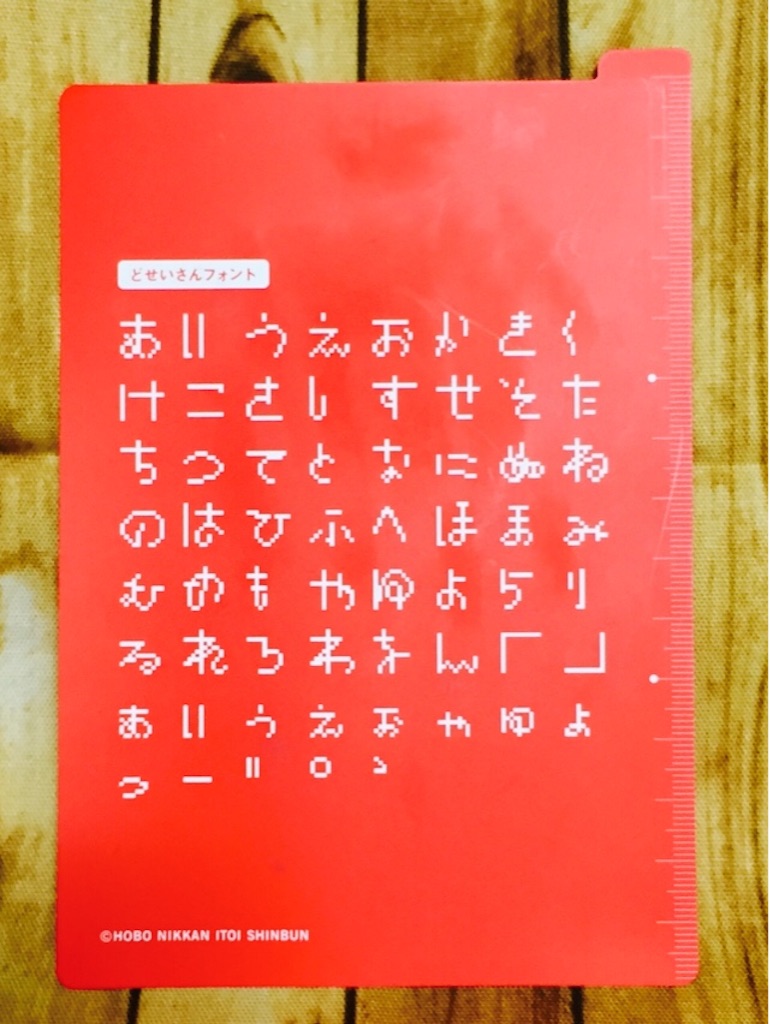 どせいさんフォント
あいうえおかきく
けこさしすせそた
ちつてとなにぬね
のはひふへほまみ
むめもやゆよらり
るれろわをん「」
ぁぃぅぇぉゃゅょ
っー゛゜、
©HOBO NIKKAN ITOI SHINBUN